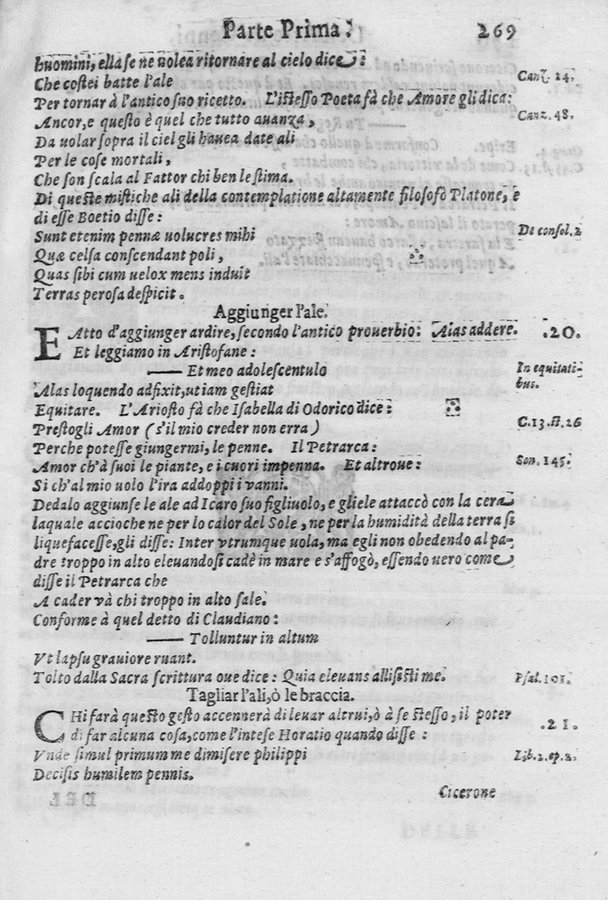 Parte Prima. 269
huomini, ella se ne uolea ritornare al cielo dice:
Che costei batte l'ale Canz. 24.
Per tornar à l'antico suo ricetto. L'istesso Poeta fà che Amore gli dica:
Ancor, e questo è quel che tutto auanza, Canz. 48.
Da uolar sopra il ciel gli hauea date ali
Per le cose mortali,
Che son scala al Fattor chi ben le stima.
Di queste mistiche ali della contemplatione altamente filosofò Platone, e
di esse Boetio disse:
Sunt etenim pennæ uolucres mihi De consol. 2
Quæ celsa conscendant poli,
Quas sibi cum uelox mens induit
Terras perosa despicit.
Aggiunger l'ale.
FAtto d'aggiunger ardire, secondo l'antico prouerbio: Alas addere. .20.
Et leggiamo in Aristofane:
—— Et meo adolescentulo In equitati-
Alas loquendo adfixit, ut iam gestiat bus.
Equitare. L'Ariosto fà che Isabella di Odorico dice:
Prestogli Amor (s'il mio creder non erra) C. 13. st. 26
Perche potesse giungermi, le penne. Il Petrarca:
Amor ch'à suoi le piante, e i cuori impenna. Et altroue: Son. 145.
Si ch'al mio uolo l'ira addoppi i vanni.
Dedalo aggiunse le ale ad Icaro suo figliuolo, e gliele attaccò con la cera
laquale accioche ne per lo calor del Sole, ne per la humidità della terra si
liquefacesse, gli disse: Inter vtrumque uola, ma egli non obedendo al pa-
dre troppo in alto eleuandosi cadè in mare e s'affogò, essendo uero come
disse il Petrarca che
A cader và chi troppo in alto sale.
Conforme à quel detto di Claudiano:
—— Tolluntur in altum
Vt lapsu grauiore ruant.
Tolto dalla Sacra scrittura oue dice: Quia eleuans allisisti me. Psal. 101.
Tagliar l'ali, ò le braccia.
CHi farà questo gesto accennerà di leuar altrui, ò à se stesso, il poter .21.
di far alcuna cosa, come l'intese Horatio quando disse:
Vnde simul primum me dimisere philippi Lib. 2. ep. 2.
Decisis humilem pennis.
Cicerone